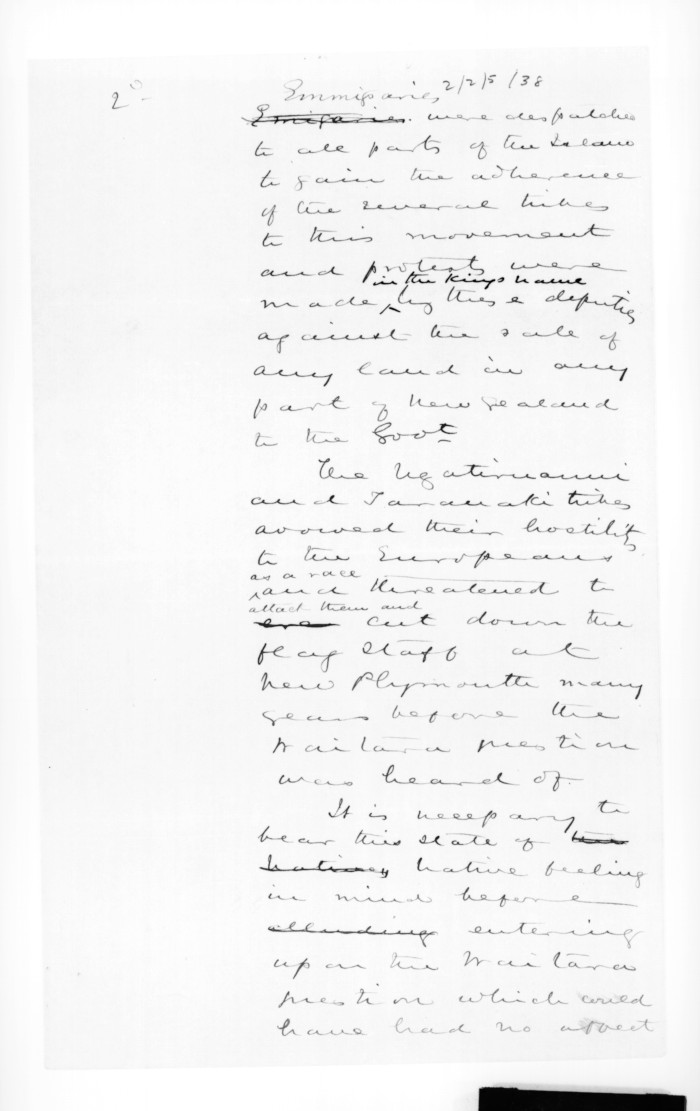 2°- 2/2/5/38
Emmisaries
Emisaries were despatched
to all parts of the Island
to gain the adherence
of the several tribes
to this movement
and protests were
in the Kings name
made, by these deputies
against the sale of
any land in any
part of New Zealand
to the Govt
The Ngatiruanui
and Taranaki tribes
avowed their hostility
to the Europeans
as a race
and threatened to
attack them and
cut down the
flag staff at
New Plymouth many
years before the
Waitara question
was heard of.
It is necessary to
bear this state of the
Natives native feeling
in mind before
alluding entering
upon the Waitara
question which could
have had no effect